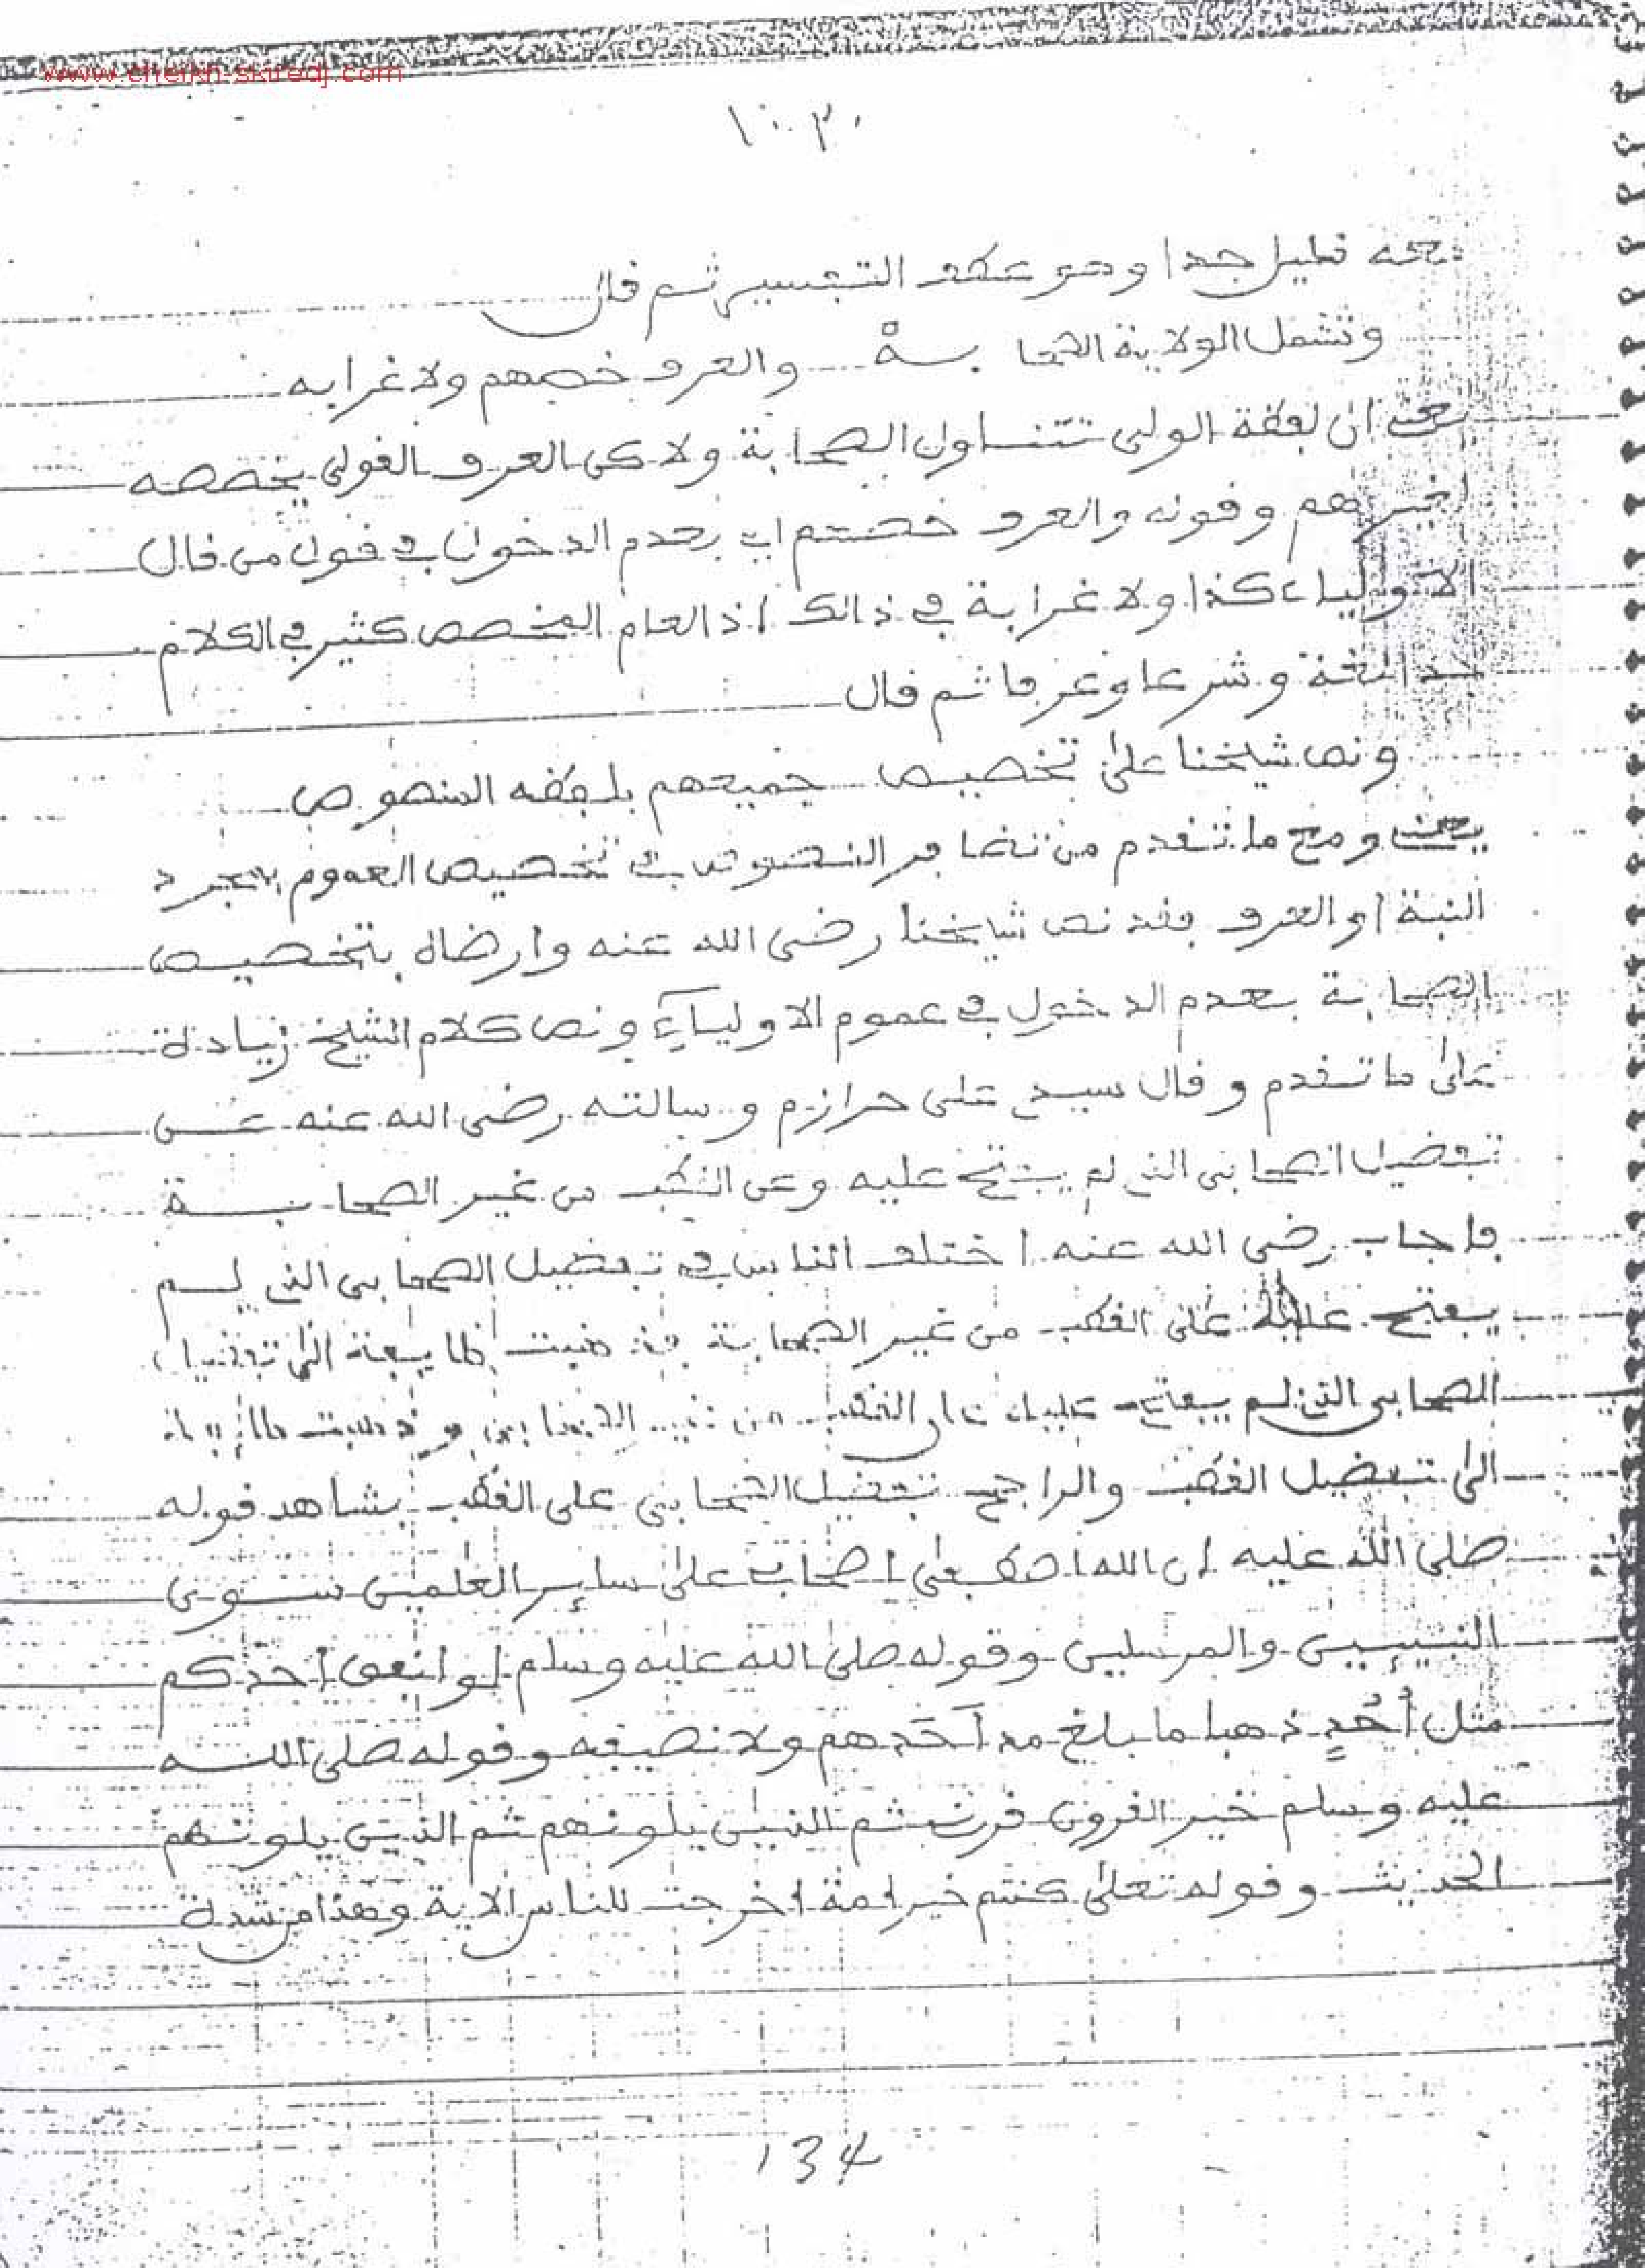 www.cheikh-skiredj.com
قليل جدا وهو عكس التفسير ثم قال
وتشمل الولاية الصحابة والعرف خصهم ولا غرابه
يعني ان لفظة الولي تتناول الصحابة ولاكن العرف القولي يخصصه
بغيرهم وقوله والعرف خصهم اي بعدم الدخول في قول من قال
الاولياء كذا ولا غرابة في ذالك اذ العام المخصص كثير في الكلام
لغة وشرعا وعرفا ثم قال
ونص شيخنا على تخصيص جميعهم بلفظه المنصوص
يعني ومع ما تقدم من النصوص في تخصيص العموم بمجرد
النية او العرف فقد نص شيخنا رضى الله عنه وارضاه بتخصيص
الصحابة بعدم الدخول في عموم الاولياء ونص كلام الشيخ زيادة
على ما تقدم وقال سيدي على حرازم وسالته رضى الله عنه عن
تفضيل الصحابى الذي لم يفتح عليه وعن القطب من غير الصحابة
فاجاب رضى الله عنه اختلف الناس في تفضيل الصحابى الذي لم
يفتح عليه على القطب من غير الصحابة فذهبت طايفة الى تفضيل
الصحابى الذي لم يفتح عليه على القطب من غير الصحابة وذهبت طايفة
الى تفضيل القطب والراجح تفضيل الصحابى على القطب بشاهد قوله
صلى الله عليه ان الله اصطفى اصحابي على ساير العلمين سوى
النبيين والمرسلين وقوله صلى الله عليه وسلم لو انفق احدكم
مثل أُحُدٍ ذهبا ما بلغ مد أحدهم ولا نصيفه وقوله صلى الله
عليه وسلم خير القرون قرني ثم الذين يلونهم ثم الذين يلونهم
الحديث وقوله تعلى كنتم خير امة اخرجت للناس الاية وهذا من شدة
134